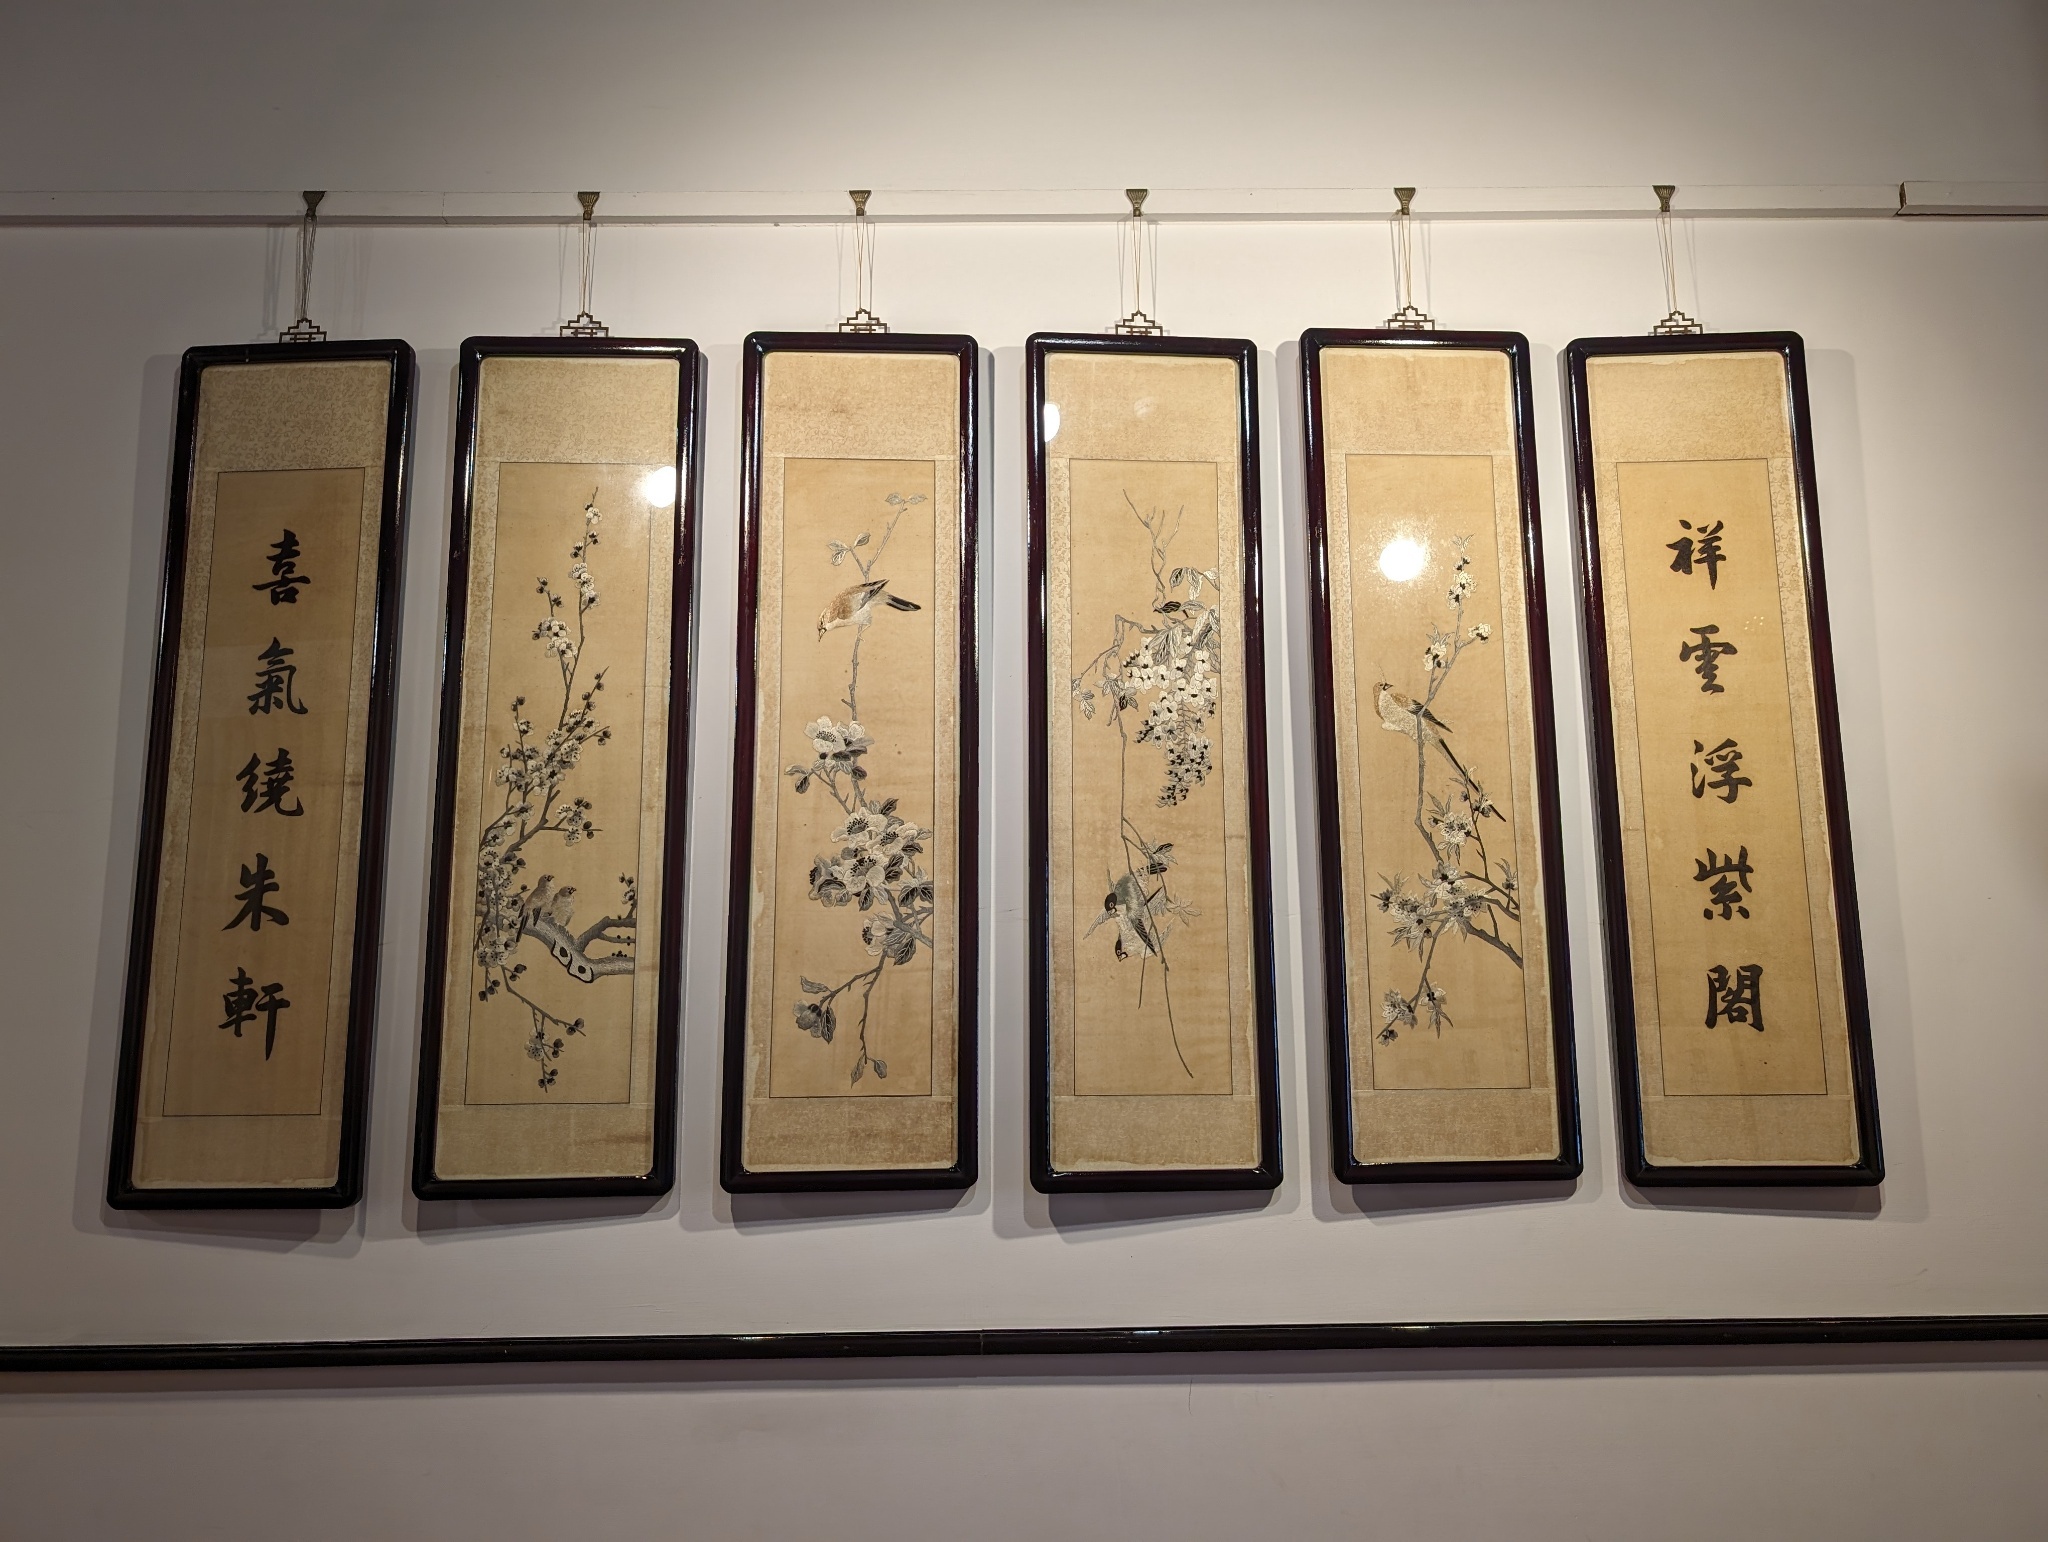 祥雲浮紫閣
喜氣繞朱軒